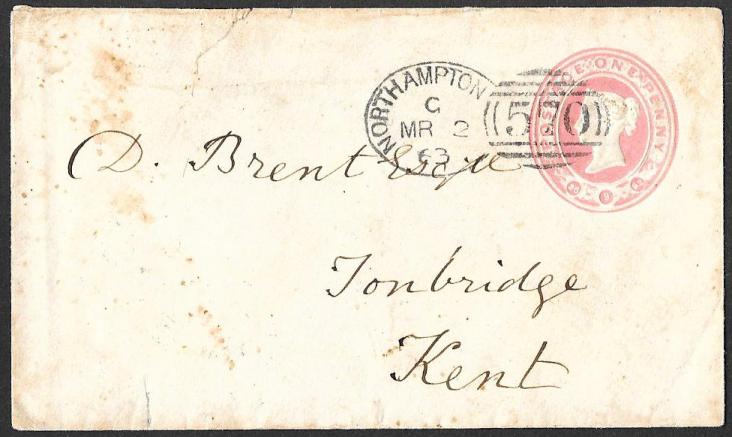 POSTAGE ONE PENNY
NORTHAMPTON
C
MR 2
63
570
D. Brent Esqre
Tonbridge
Kent